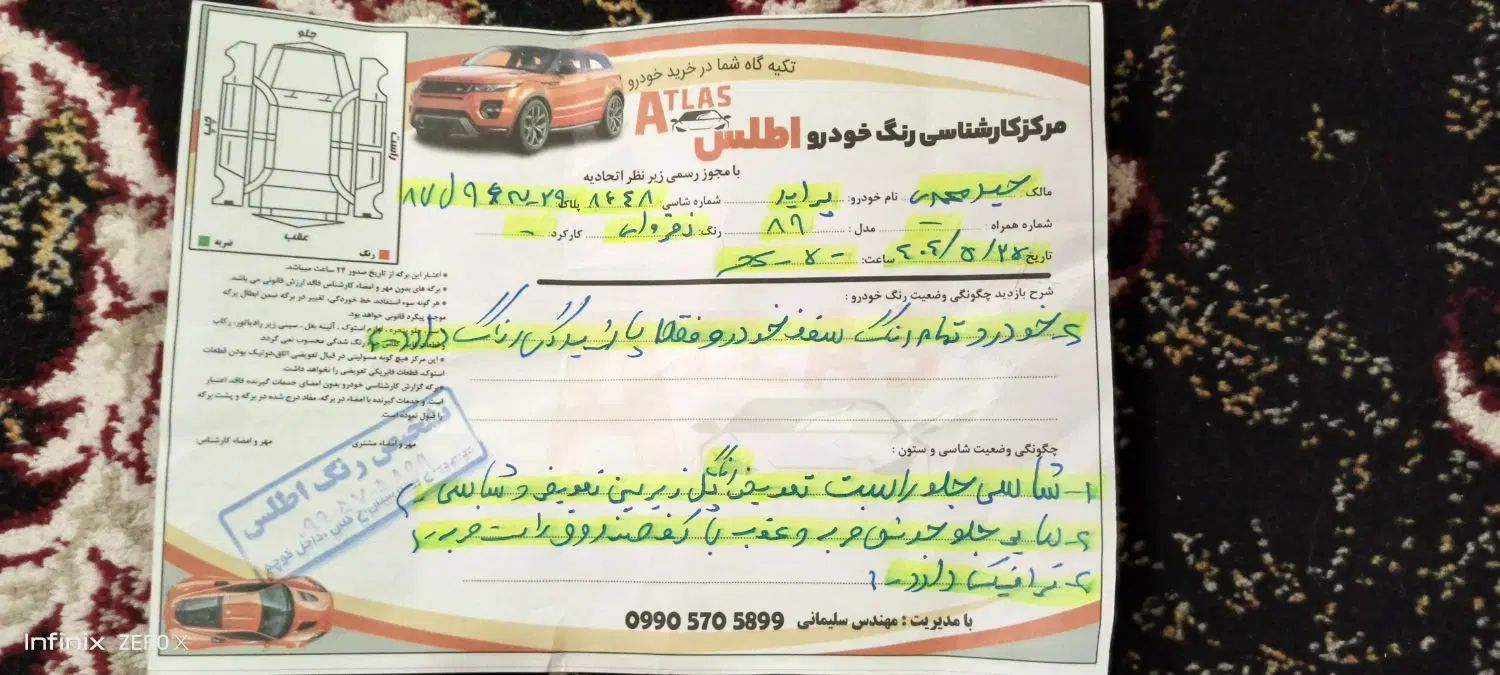 تکیه گاه شما در خرید خودرو
ATLAS
مرکز کارشناسی رنگ خودرو اطلس
با مجوز رسمی زیر نظر اتحادیه
مالک: نام خودرو: پراید شماره شاسی: ۸۶۴۸ پلاک:
شماره همراه: - مدل: ۸۹ رنگ: نقره‌ای کارکرد: -
تاریخ ۴۰۴/۵/۲۷ ساعت:
شرح بازدید چگونگی وضعیت رنگ خودرو:
خودرو تمام رنگ سقف خودرو فقط پاشیدگی رنگ دارد
چگونگی وضعیت شاسی و ستون:
۱- شاسی جلو راست تعویض رنگ گل زیر سینی تعویض و شاسی
سینی جلو ضربه و عقب با کف صندوق راست ضربه
ترافیک دارد
با مدیریت: مهندس سلیمانی 0990 570 5899
جلو
چپ
راست
عقب
ضربه
رنگ
* اعتبار این برگه از تاریخ صدور ۲۴ ساعت میباشد.
* برگه های بدون مهر و امضاء کارشناس فاقد ارزش قانونی می باشد.
* هر گونه سوء استفاده، خط خوردگی، تغییر در برگه ضمن ابطال برگه
موجب پیگرد قانونی خواهد بود.
استوک، آئینه بغل، سینی زیر رادیاتور، رکاب
رنگ شدگی محسوب نمی گردد.
* این مرکز هیچ گونه مسئولیتی در قبال تعویضی اتاق، دوتیکه بودن قطعات
استوک، قطعات فابریکی تعویضی را نخواهد داشت.
برگه گزارش کارشناسی خودرو بدون امضای خدمات گیرنده فاقد اعتبار
است و خدمات گیرنده با امضاء در برگه، مفاد درج شده در برگه و پشت برگه
را قبول نموده است.
مهر و امضاء مشتری مهر و امضاء کارشناس:
رنگ اطلس
Infinix ZERO X